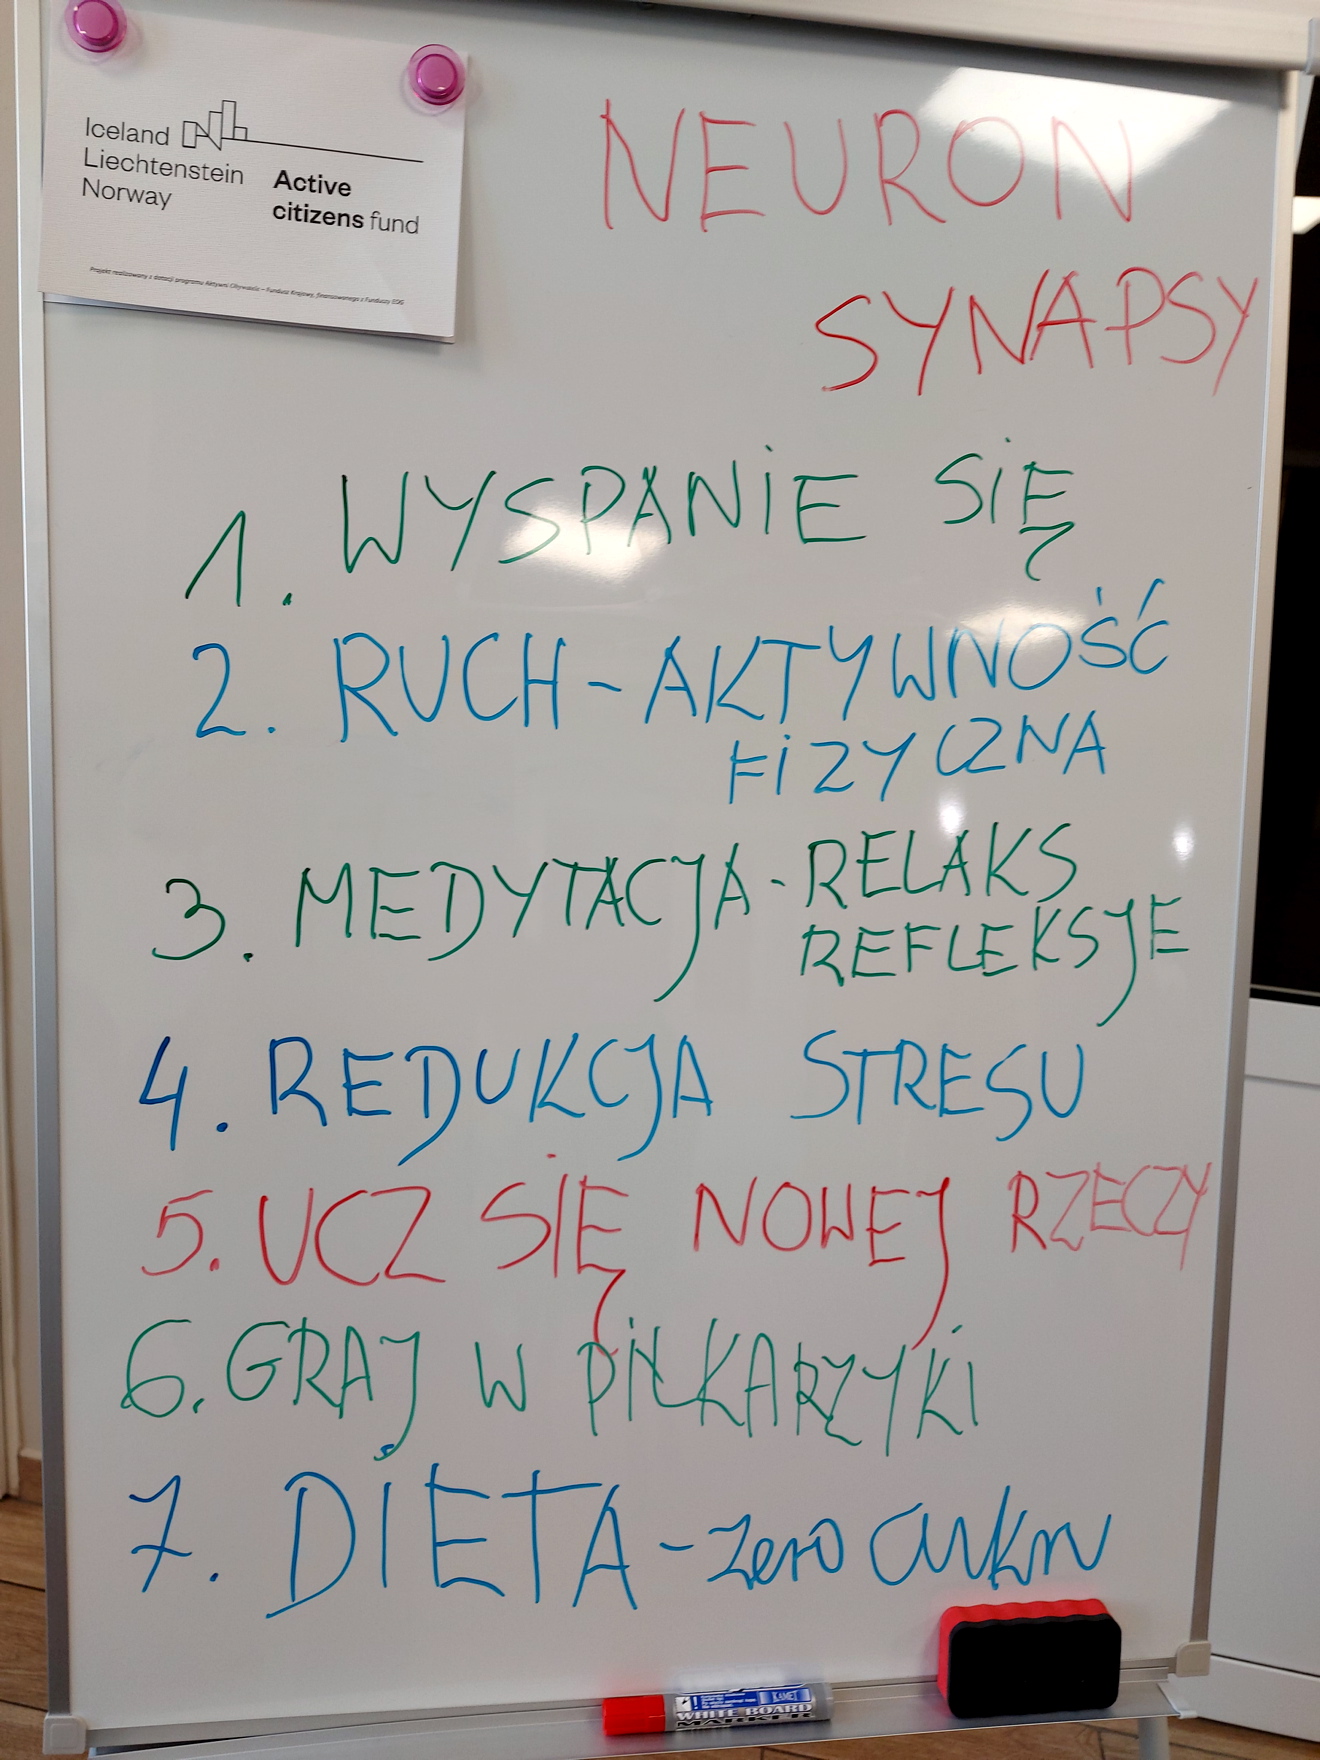 Iceland
Liechtenstein
Norway
Active
citizens fund
Projekt realizowany z dotacji programu Aktywni Obywatele – Fundusz Krajowy, finansowanego z Funduszy EOG
NEURON
SYNAPSY
1. WYSPANIE SIĘ
2. RUCH - AKTYWNOŚĆ
FIZYCZNA
3. MEDYTACJA - RELAKS
REFLEKSJE
4. REDUKCJA STRESU
5. UCZ SIĘ NOWEJ RZECZY
6. GRAJ W PIŁKARZYKI
7. DIETA - zero cukru
KAMET
WHITE BOARD
MARKER